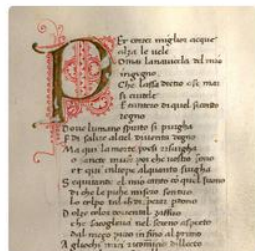 Per correr miglior acque
alza le uele
Omai la nauicella del mio
ingegno
Che lassa dietro a se mar
si crudele
E cantero di quel secondo
regno
Doue lumano spirito si purgha
di salire al ciel diuenta degno
Ma qui la morte poesi risurgha
o sancte muse poi che uostro sono
et qui caliope alquanto surgha
Seguitante il mio canto con quel suono
di che le piche misere sentiuo
lo colpo tal che
Dolce color oriental
che saccoglieua nel sereno aspecto
dal mezo puro insino al primo
A gliochi miei dilecto